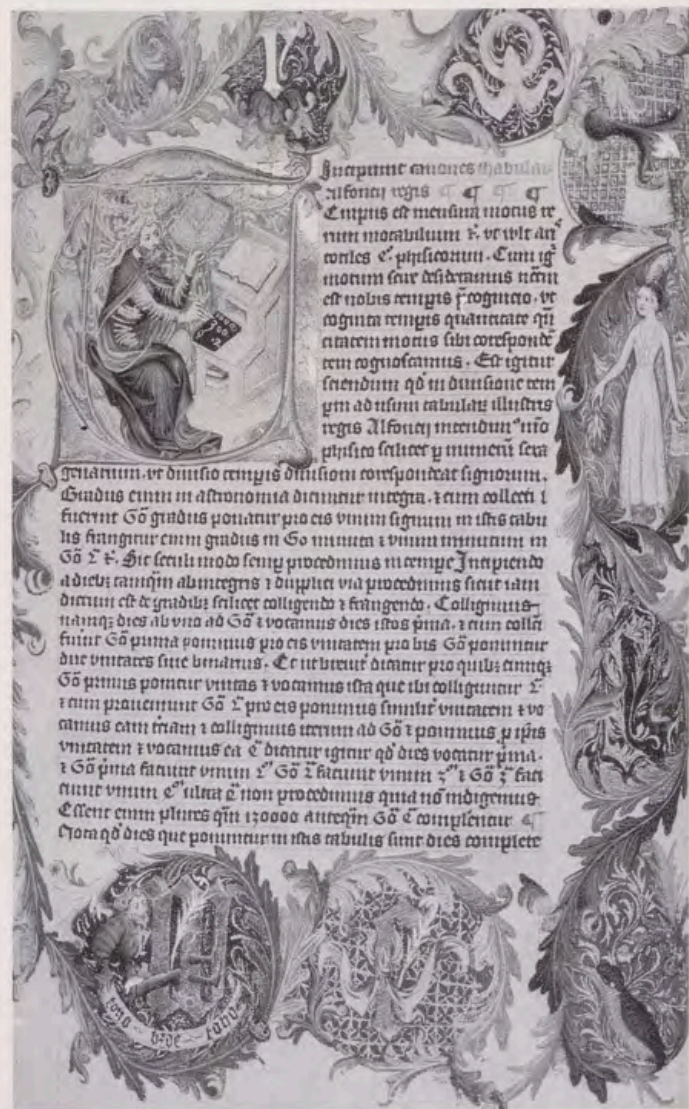 Incipiunt canones thabulaꝝ
Alfoncii regis ¶ ¶ ¶ ¶
Empus est mensura motus re
rum mobilium ⁊. vt wlt ari
totiles phisicorum. Cum igͥ
motum scire desideramus
est nobis tempis p̄cognicio. vt
cognita tempis quantitate qn̄
titatem motus sibi corespondē
tem cognoscamus. Est igitur
sciendum qd̄ in diuisione tem
pm̄ ad usum tabulaꝝ illustris
regis Alfoncii intendunt
phisico scilicet ꝑ numerū sexa
genarium. vt diuisio tempis diuisioni corespondeat signorum.
Gradus enim in astronomia dicuntur integra. ⁊ cum collecti
fuerint 60 gradus ponatur pro eis vnum signum in istis tabu
lis frangitur enim gradus in 60 minuta ⁊ vnum minutum in
60 ⁊. Sic seculi modo semꝑ procedimus in tempe Incipiendo
a diebꝫ tamqm̄ ab integris ⁊ dupplici via procedimus sicut iam
dictum est de gradibꝫ scilicet colligendo ⁊ frangendo. Colligimus
namqꝫ dies ab vno ad 60 ⁊ vocamus dies istos p̄ma. ⁊ cum collec̄
fuīnt 60 prima ponimus pro eis vnitatem pro bis 60 ponuntur
due vnitates siue binarius. Et ut breuiī dicatur pro quibꝫ cumqꝫ
60 primis ponitur vnitas ⁊ vocamus ista que ibi colliguntur
⁊ cum proueniunt 60 pro eis ponimus similiī vnitatem ⁊ vo
camus eam ⁊ colligimus iterum ad 60 ⁊ ponimus ꝑ ip̄is
vnitatem ⁊ vocamus ea dicatur igitur qd̄ dies vocatur p̄ma.
⁊ 60 p̄ma faciunt vnum 60 faciunt vnum ⁊ 60 faci
unt vnum ultra non procedimus quia nō indigemus
Essent enim plures qm̄ 120000 anteqm̄ 60 complentur ¶
Nota qd̄ dies que ponuntur in istis tabulis sunt dies complete
toho bzde toho